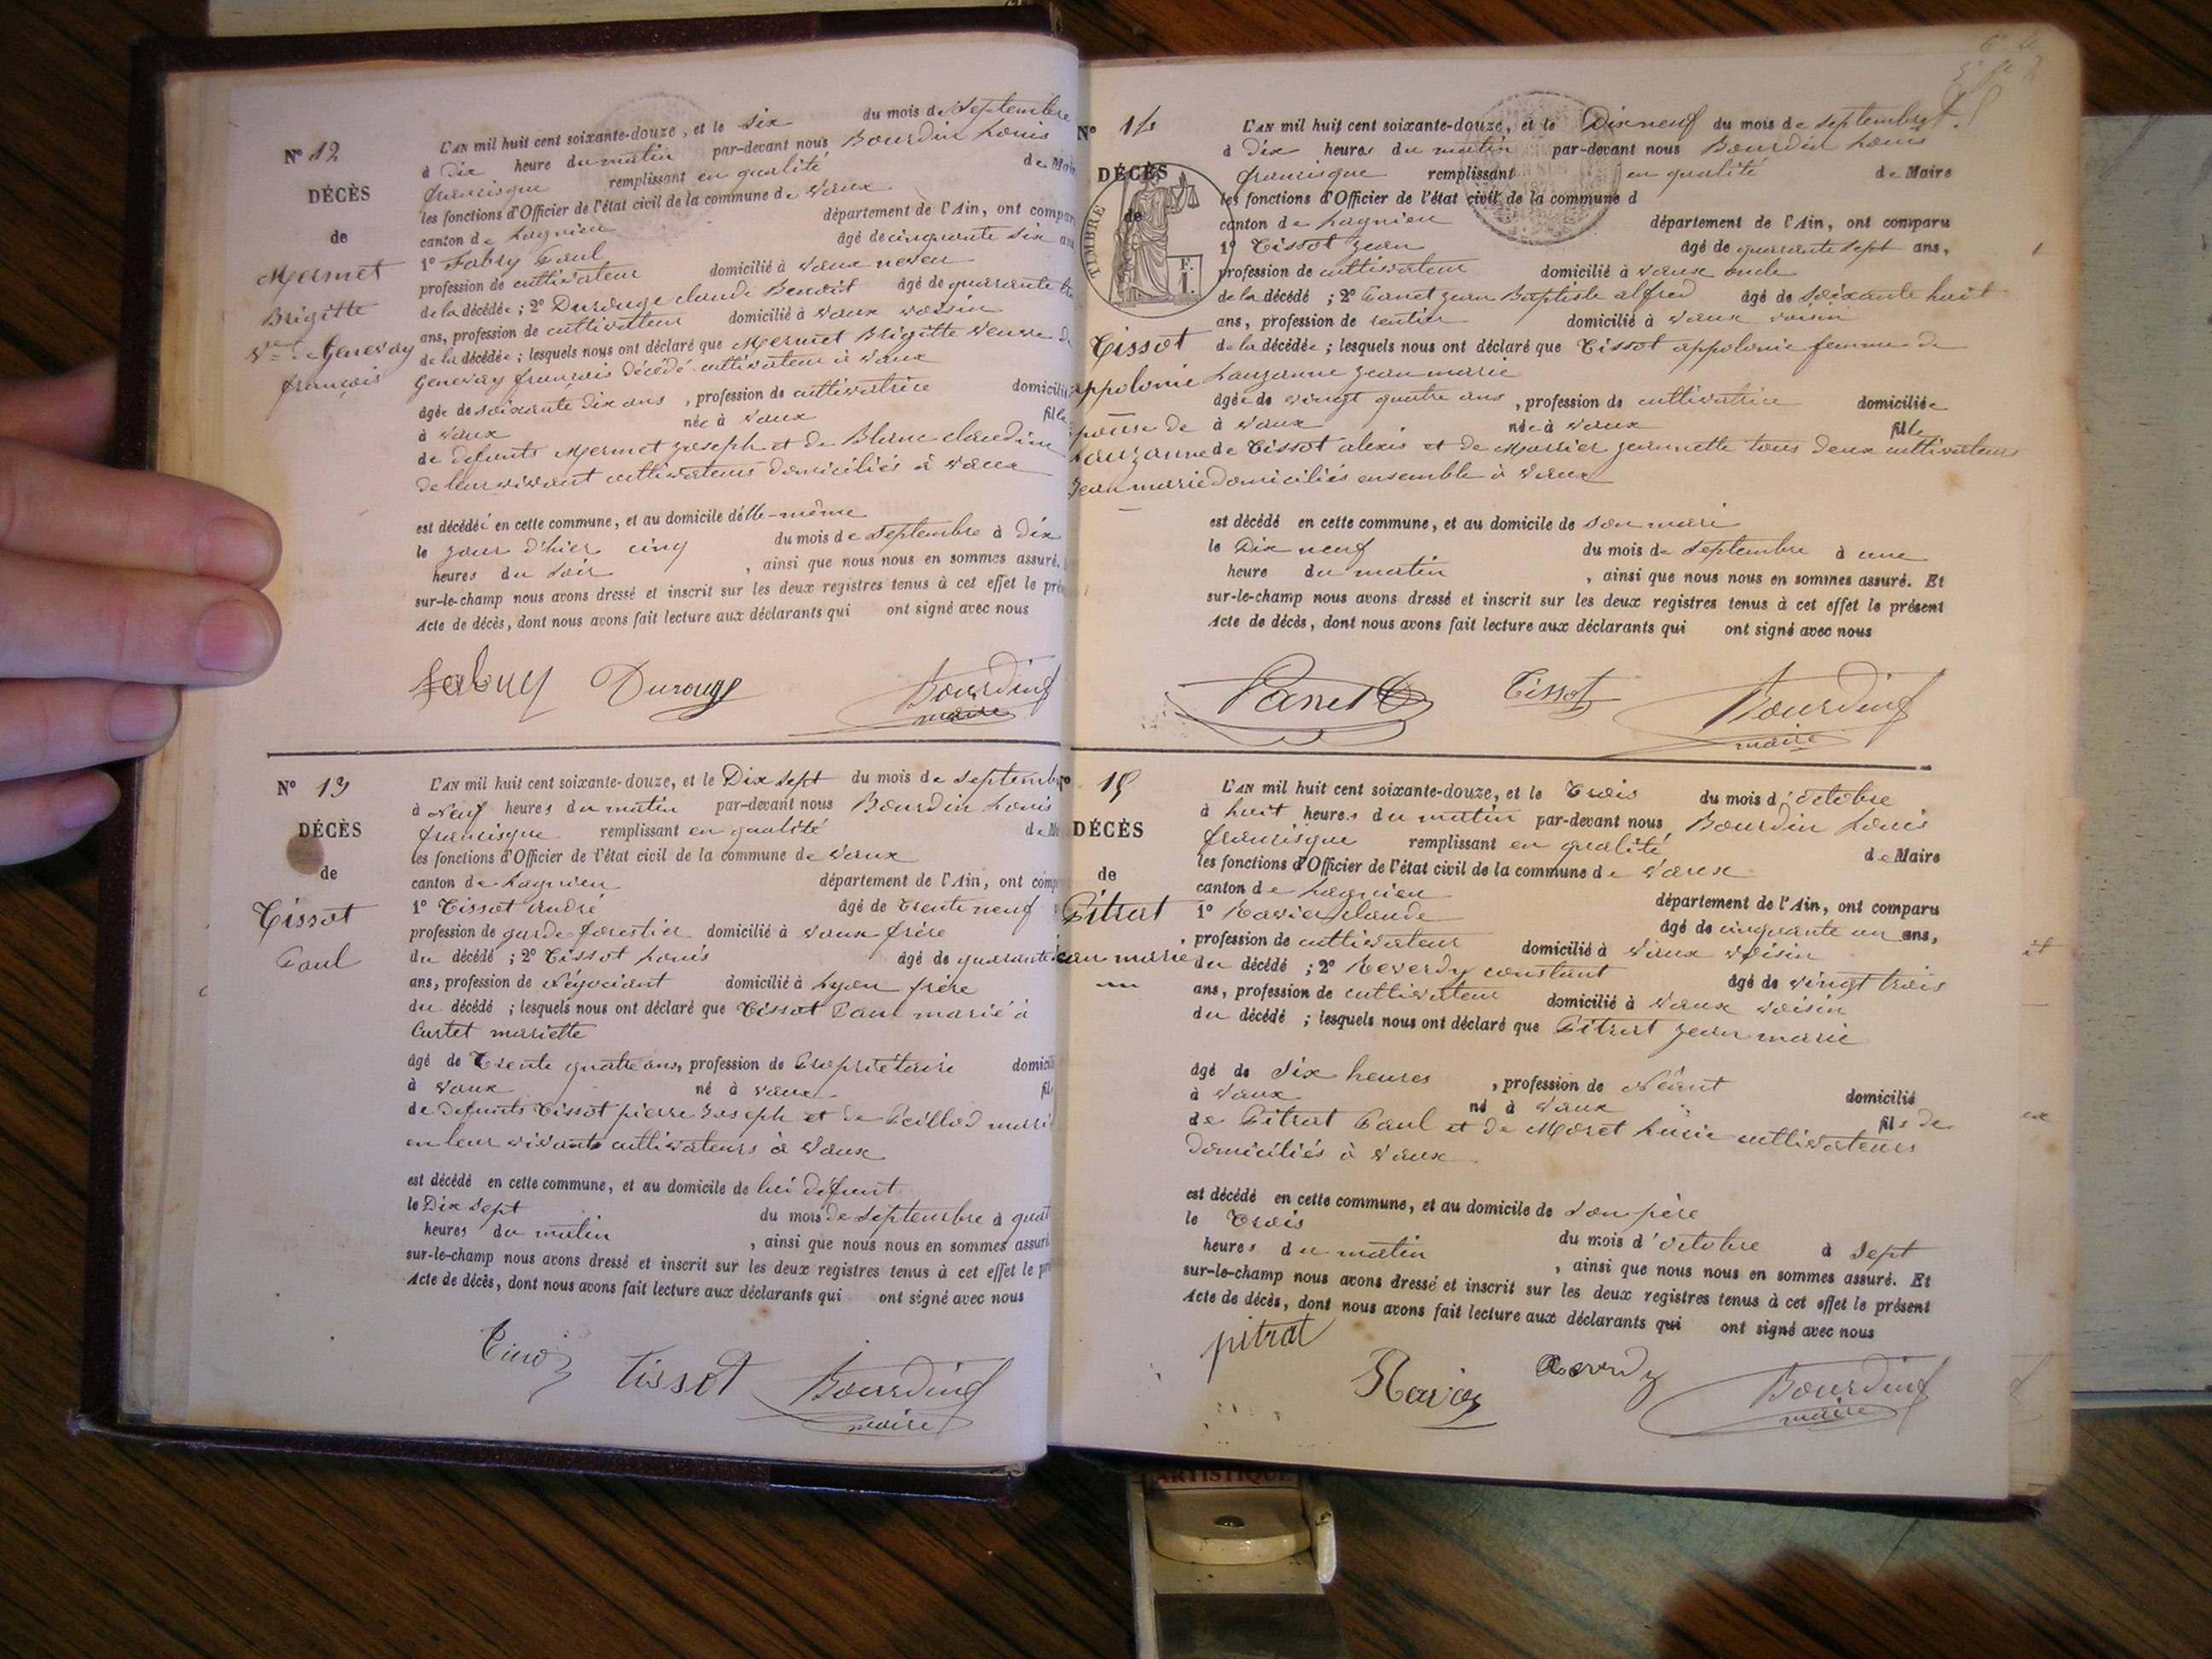 N° 12
DÉCÈS
de
Mermet
Brigitte
Vve de Genevay
françois
L'AN mil huit cent soixante-douze, et le six du mois de septembre
à Dix heure du matin par-devant nous Bourdin Louis
francisque remplissant en qualité de Mair
les fonctions d'Officier de l'état civil de la commune de Vaux
canton de Lagnieu département de l'Ain, ont compar
1° Fabry Paul âgé de cinquante six an
profession de cultivateur domicilié à Vaux neveu
de la décédée ; 2° Durouge claude Benoit âgé de quarante
ans, profession de cultivateur domicilié à Vaux voisin
de la décédée ; lesquels nous ont déclaré que Mermet Brigitte Veuve de
Genevay françois décédé cultivateur à Vaux
âgée de soixante dix ans , profession de cultivatrice domicili
à Vaux née à Vaux fille
de defunts Mermet Joseph et de Blanc claudine
de leur vivant cultivateurs domiciliés à Vaux
est décédée en cette commune, et au domicile d'elle-même
le jour d'hier cinq du mois de septembre à dix
heures du soir , ainsi que nous nous en sommes assuré.
sur-le-champ nous avons dressé et inscrit sur les deux registres tenus à cet effet le pré
Acte de décès, dont nous avons fait lecture aux déclarants qui ont signé avec nous
fabry Durouge Bourdin
maire
N° 13
DÉCÈS
de
Tissot
Paul
L'AN mil huit cent soixante-douze, et le Dix sept du mois de septemb
à Neuf heures du matin par-devant nous Bourdin Louis
francisque remplissant en qualité de M
les fonctions d'Officier de l'état civil de la commune de Vaux
canton de Lagnieu département de l'Ain, ont comp
1° Tissot André âgé de trente neuf
profession de garde forestier domicilié à Vaux frère
du décédé ; 2° Tissot Louis âgé de quarante
ans, profession de Négociant domicilié à Lyon frère
du décédé ; lesquels nous ont déclaré que Tissot Paul marié à
Curtet mariette
âgé de Trente quatre ans, profession de Propriétaire domici
à Vaux né à Vaux fil
de defunts Tissot pierre Joseph et de Peillod mari
en leur vivants cultivateurs à Vaux
est décédé en cette commune, et au domicile de lui défunt
le Dix sept du mois de septembre à quat
heures du matin , ainsi que nous nous en sommes assuré
sur-le-champ nous avons dressé et inscrit sur les deux registres tenus à cet effet le pr
Acte de décès, dont nous avons fait lecture aux déclarants qui ont signé avec nous
Tissot Bourdin
maire
N° 14
DÉCÈS
de
TIMBRE
F.
1.
Tissot
appolonie
épouse de
Lauzanne
Jean marie
L'AN mil huit cent soixante-douze, et le Dix neuf du mois de septembre
à Dix heures du matin par-devant nous Bourdin Louis
francisque remplissant en qualité de Maire
les fonctions d'Officier de l'état civil de la commune d
canton de Lagnieu département de l'Ain, ont comparu
1° Tissot Jean âgé de quarante sept ans,
profession de cultivateur domicilié à Vaux oncle
de la décédé ; 2° Canet Jean Baptiste alfred âgé de soixante huit
ans, profession de rentier domicilié à Vaux voisin
de la décédée ; lesquels nous ont déclaré que Tissot appolonie femme de
Lauzanne Jean marie
âgée de vingt quatre ans , profession de cultivatrice domiciliée
à Vaux née à Vaux fille
de Tissot alexis et de Marrier Jeannette tous deux cultivateurs
domiciliés ensemble à Vaux
est décédé en cette commune, et au domicile de son mari
le Dix neuf du mois de septembre à une
heure du matin , ainsi que nous nous en sommes assuré. Et
sur-le-champ nous avons dressé et inscrit sur les deux registres tenus à cet effet le présent
Acte de décès, dont nous avons fait lecture aux déclarants qui ont signé avec nous
Canet Tissot Bourdin
maire
15
DÉCÈS
de
Pitrat
Jean marie
L'AN mil huit cent soixante-douze, et le Trois du mois d'octobre
à huit heures du matin par-devant nous Bourdin Louis
francisque remplissant en qualité de Maire
les fonctions d'Officier de l'état civil de la commune de Vaux
canton de Lagnieu département de l'Ain, ont comparu
1° Ravier claude âgé de cinquante un ans,
profession de cultivateur domicilié à Vaux voisin
du décédé ; 2° Reverdy constant âgé de vingt trois
ans, profession de cultivateur domicilié à Vaux voisin
du décédé ; lesquels nous ont déclaré que Pitrat Jean marie
âgé de six heures , profession de Néant domicilié
à Vaux né à Vaux fils de
de Pitrat Paul et de Moret Lucie cultivateurs
domiciliés à Vaux
est décédé en cette commune, et au domicile de son père
le Trois du mois d'octobre à sept
heures du matin , ainsi que nous nous en sommes assuré. Et
sur-le-champ nous avons dressé et inscrit sur les deux registres tenus à cet effet le présent
Acte de décès, dont nous avons fait lecture aux déclarants qui ont signé avec nous
pitrat
Ravier Reverdy Bourdin
maire
ARTISTIQUE